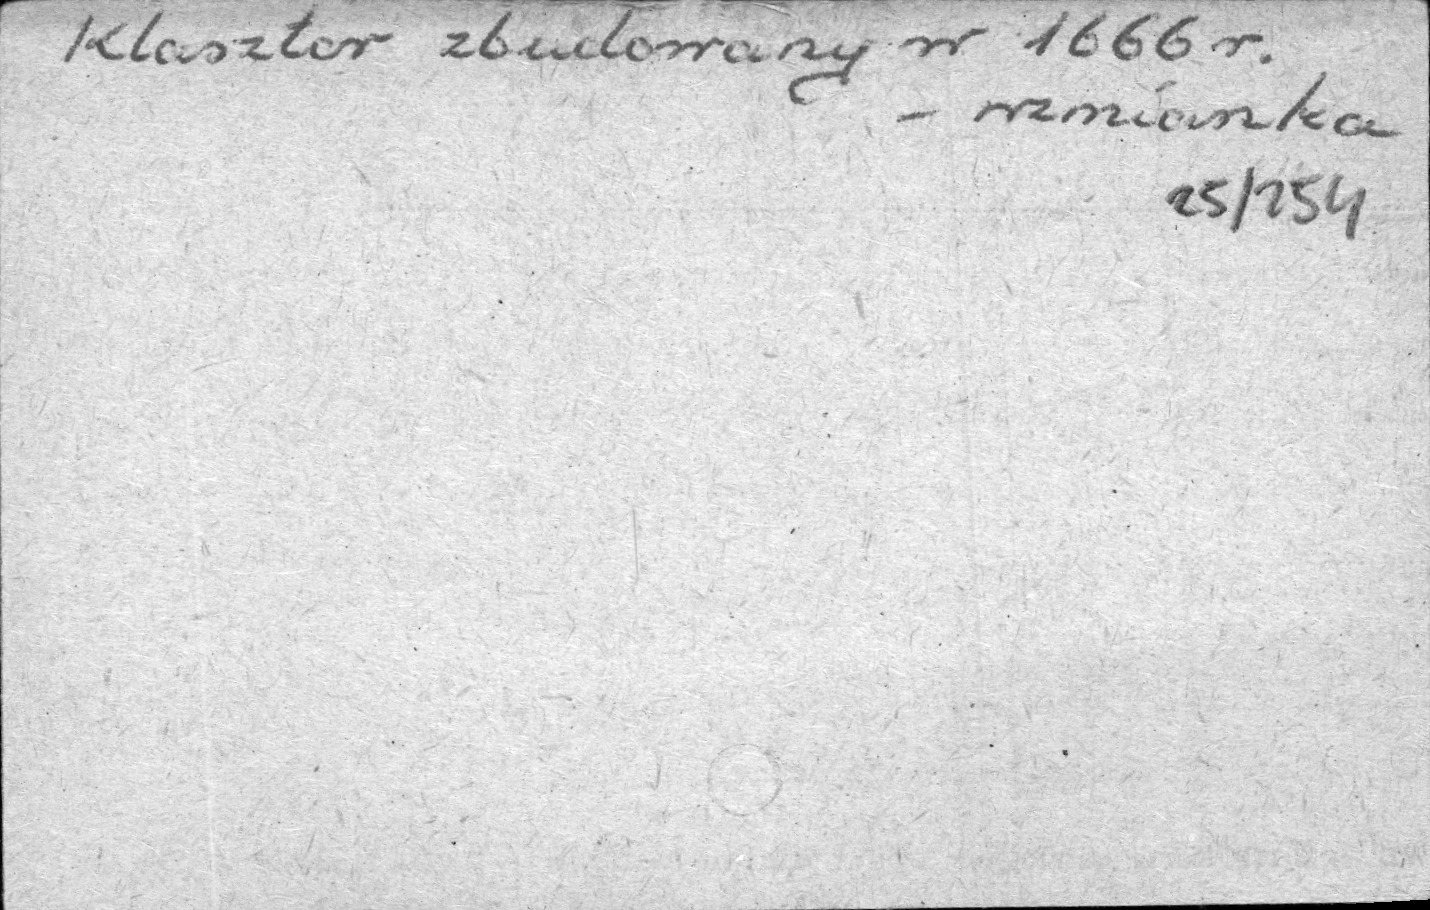 Klasztor zbudowany w 1666 r.
– wzmianka
25/254